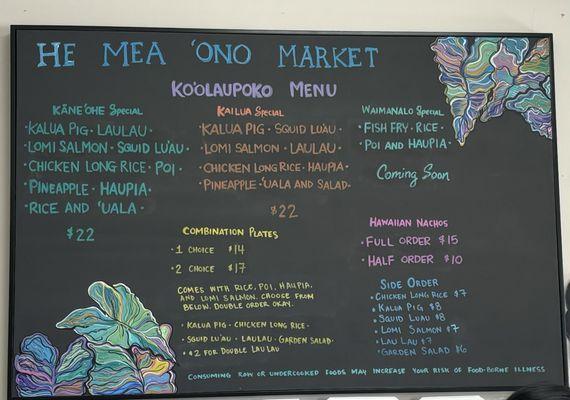 HE MEA 'ONO MARKET
KO'OLAUPOKO MENU
KĀNE'OHE SPECIAL
·KALUA PIG · LAULAU ·
·LOMI SALMON · SQUID LU'AU ·
·CHICKEN LONG RICE · POI ·
·PINEAPPLE · HAUPIA ·
·RICE AND 'UALA ·
$22
KAILUA SPECIAL
·KALUA PIG · SQUID LU'AU ·
·LOMI SALMON · LAULAU ·
·CHICKEN LONG RICE · HAUPIA ·
·PINEAPPLE · 'UALA AND SALAD ·
$22
WAIMANALO SPECIAL
·FISH FRY · RICE ·
·POI AND HAUPIA ·
Coming Soon
COMBINATION PLATES
·1 CHOICE $14
·2 CHOICE $17
COMES WITH RICE, POI, HAUPIA,
AND LOMI SALMON. CHOOSE FROM
BELOW. DOUBLE ORDER OKAY.
·KALUA PIG · CHICKEN LONG RICE ·
·SQUID LU'AU · LAULAU · GARDEN SALAD ·
·+$2 FOR DOUBLE LAU LAU
HAWAIIAN NACHOS
·FULL ORDER $15
·HALF ORDER $10
SIDE ORDER
·CHICKEN LONG RICE $7
·KALUA PIG $8
·SQUID LUAU $8
·LOMI SALMON $7
·LAU LAU $7
·GARDEN SALAD $6
CONSUMING RAW OR UNDERCOOKED FOODS MAY INCREASE YOUR RISK OF FOOD-BORNE ILLNESS